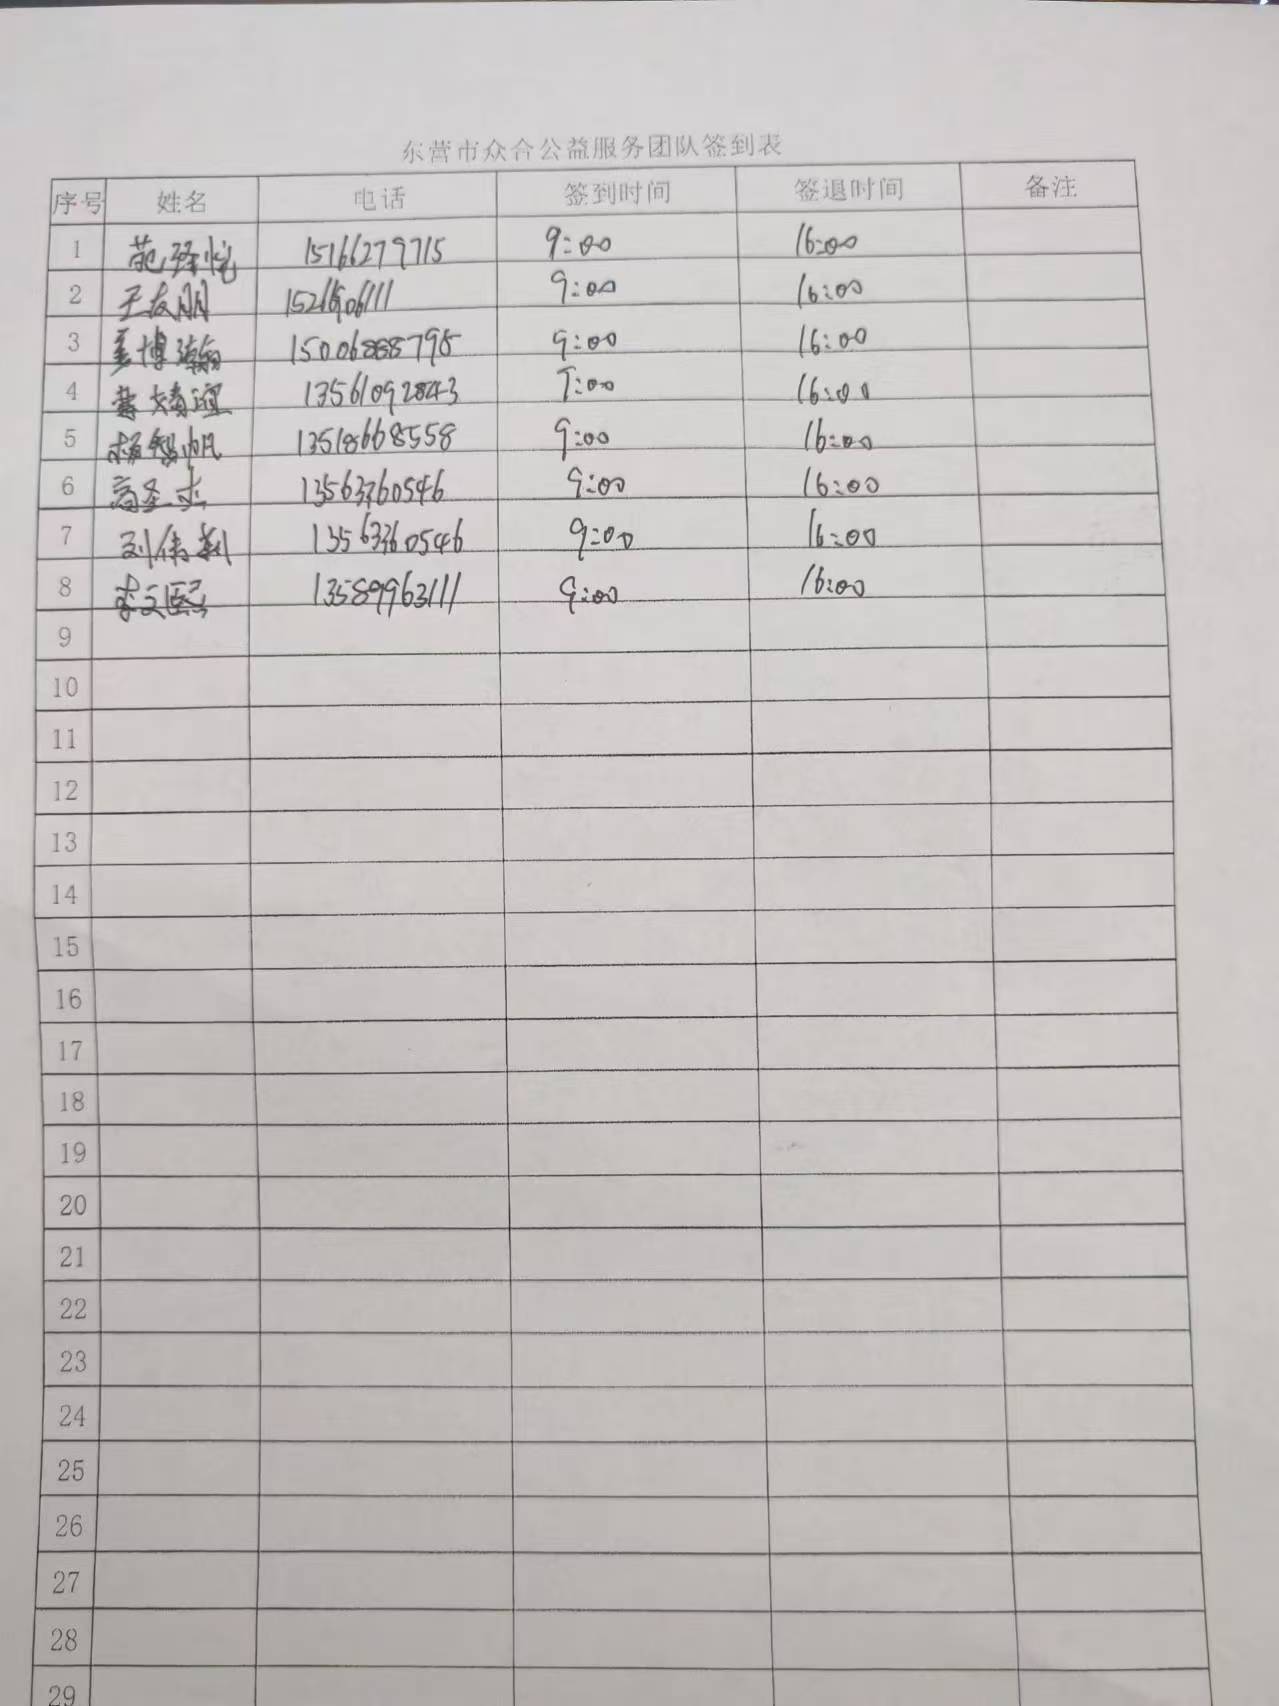 东营市众合公益服务团队签到表
序号 姓名 电话 签到时间 签退时间 备注
1 范泽悦 15166279715 9:00 16:00
2 王友朋 9:00 16:00
3 姜博瀚 15006888795 9:00 16:00
4 婧谊 13561092843 9:00 16:00
5 杨智帆 13518668558 9:00 16:00
6 高圣杰 13563360546 9:00 16:00
7 刘伟 13563360546 9:00 16:00
8 李文熙 13589963111 9:00 16:00
9
10
11
12
13
14
15
16
17
18
19
20
21
22
23
24
25
26
27
28
29